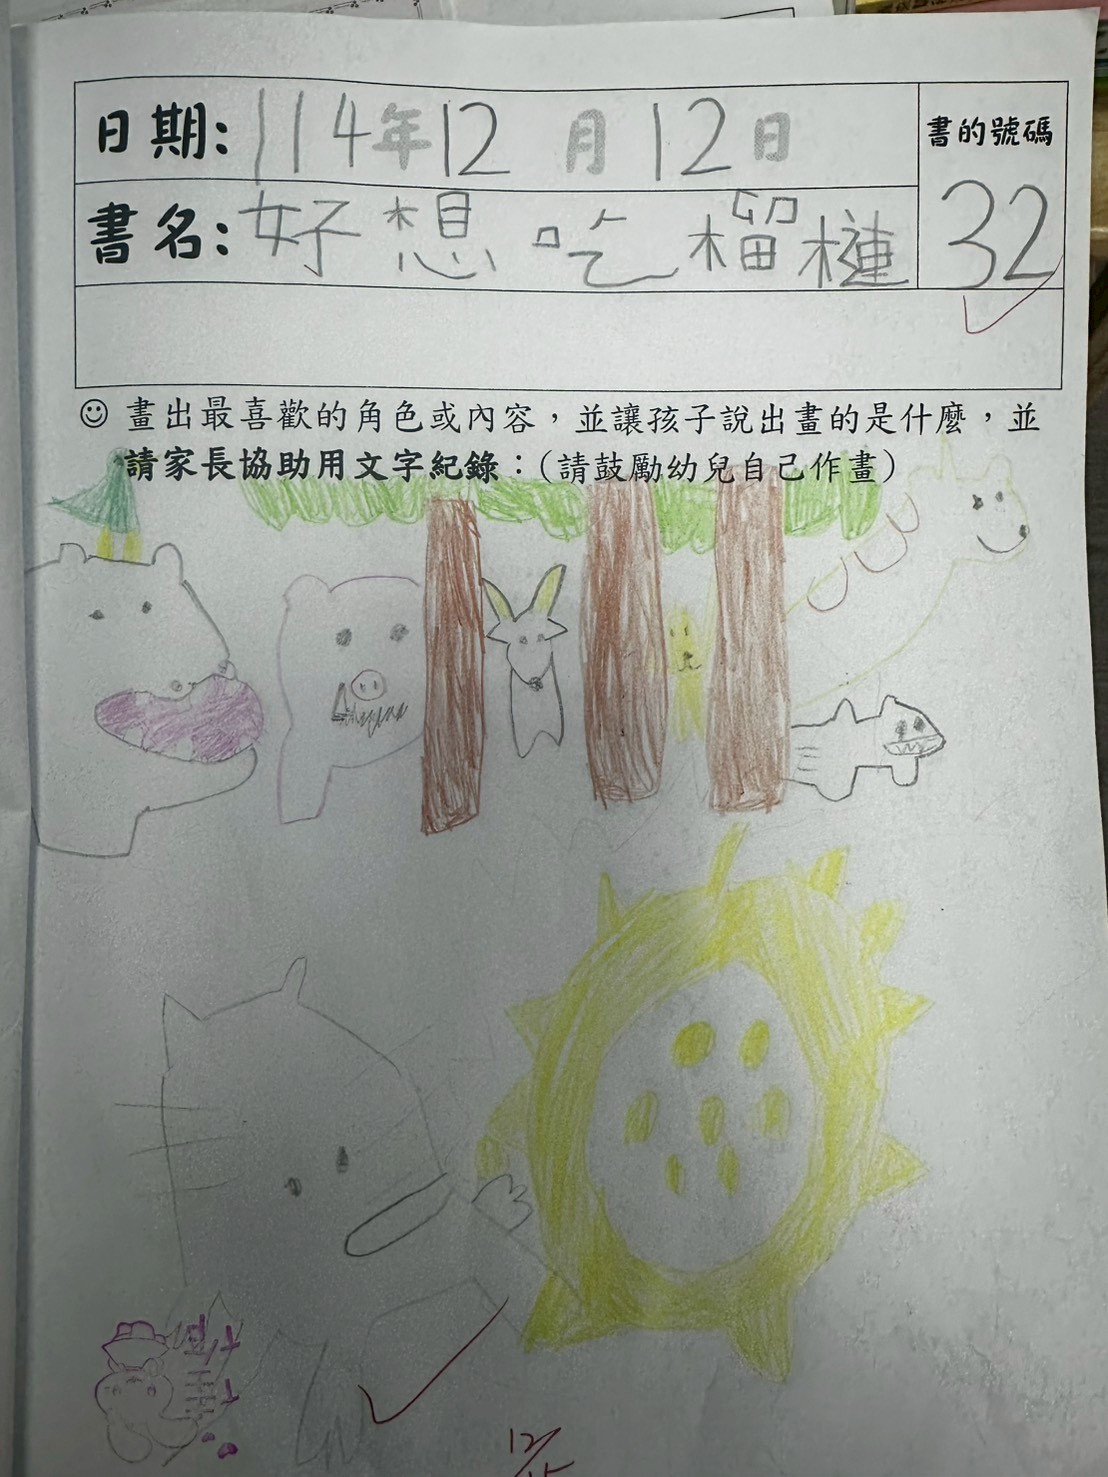 日期：114年12月12日
書的號碼
書名：好想吃榴槤
32
☺ 畫出最喜歡的角色或內容，並讓孩子說出畫的是什麼，並
請家長協助用文字紀錄：（請鼓勵幼兒自己作畫）
12/15